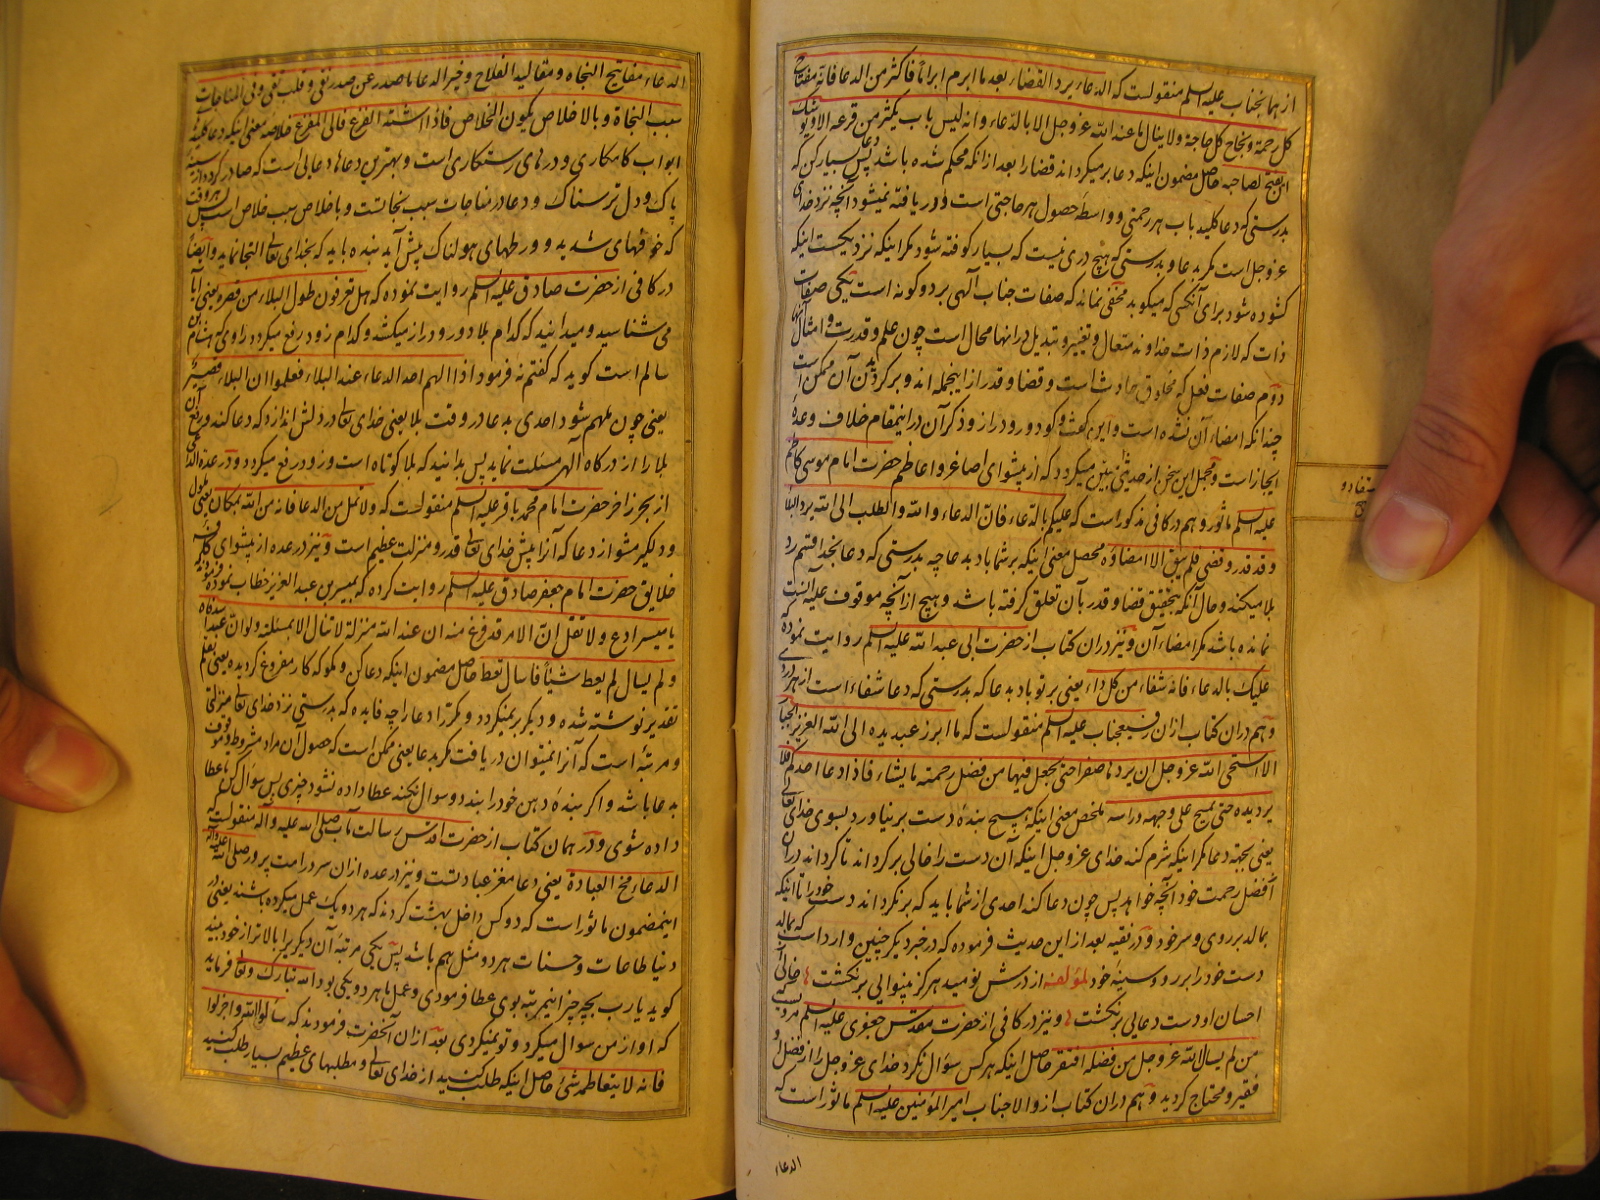 از همانجناب علیه السلم منقولست که الدعاء یرد القضاء بعد ما ابرم ابراما فاکثر من الدعا فانه مفتاح
کل رحمة و نجاح کل حاجة ولا ینال ما عند الله عز و جل الا بالدعاء وانه لیس باب یکثر من قرعه الا و یوشک
ان یفتح لصاحبه حاصل مضمون اینکه دعا بر میکرداند قضا را بعد از انکه محکم شده باشد پس دعا بسیار کن که
بدرستی که دعا کلید باب هر رحمتی و واسطه حصول هر حاجتی است و در یافته نمیشود آنچه نزد خدای
عز و جل است مکر بدعا و بدرستی که هیچ دری نیست که بسیار کوفته شود مکر اینکه نزدیکست اینکه
کشوده شود برای آنکسی که میکوبد مخفی نماند که صفات جناب آلهی بر دو کونه است یکی صفات
ذات که لازم ذات خداوند متعال و تغییر و تبدیل در انها محال است چون علم و قدرت و امثال آنها
دوم صفات فعل که مخلوق حادث است و قضا و قدر از اینجمله اند و بر کردیدن آن ممکن است
چندانکه امضاء آن نشده است و این کفت و کو دور و دراز و ذکر آن در اینمقام خلاف وعده
ایجاز است و مجمل این سخن از حدیثی مبین میکردد که از پیشوای اصاغر و اعاظم حضرت امام موسی کاظم
علیه السلم ماثور و هم در کافی مذکور است که علیکم بالدعاء فان الدعاء والله والطلب الی الله یرد البلاء
و قد قدر و قضی فلم یبق الا امضاؤه محصل معنی اینکه بر شما باد بدعا چه بدرستی که دعا بخدا قسم رد
بلا میکند و حال آنکه بتحقیق قضا و قدر بآن تعلق کرفته باشد و هیچ از آنچه موقوف علیه آنست
نمانده باشد مکر امضاء آن و نیز در ان کتاب از حضرت ابی عبد الله علیه السلم روایت نموده که
علیک بالدعاء فانه شفاء من کل داء یعنی بر تو باد بدعا که بدرستی که دعا شفاء است از هر دردی
و هم در ان کتاب از ان علیه السلم منقولست که ما ابرز عبد یده الی الله العزیز الجبار
الا استحیی الله عز و جل ان یردها صفرا حتی یجعل فیها من فضل رحمته ما یشاء فاذا دعا احدکم فلا
یرد یده حتی یمسح علی وجهه وراسه ملخص معنی اینکه هیچ بندهٔ دست بر نیاورد بسوی خدای تعالی
یعنی بجهة دعا مکر اینکه شرم کند خدای عز و جل اینکه آن دست را خالی بر کرداند تا کرداند در ان
از فضل رحمت خود آنچه خواهد پس چون دعا کند احدی از شما باید که بر نکرداند دست خود را تا اینکه
بمالد بر روی و سر خود و در فقیه بعد از این حدیث فرموده که در خبر دیکر چنین وارد است که بمالد
دست خود را بر رو و سینهٔ خود لمؤلفه از درش نومید هرکز بینوایی بر نکشت خالی از
احسان او دست دعایی بر نکشت و نیز در کافی از حضرت مقدس جعفری علیه السلم مرویست که
من لم یسال الله عز و جل من فضله افتقر حاصل اینکه هر کس سؤال نکرد خدای عز و جل را از فضل او
فقیر و محتاج کردید و هم در ان کتاب از والاجناب امیر المؤمنین علیه السلم ماثور است که
الدعاء
الدعاء مفاتیح النجاه و مقالید الفلاح و خیر الدعا ما صدر عن صدر نقی و قلب تقی و فی المناجات
سبب النجاة و بالاخلاص یکون الخلاص فاذا اشتد الفزع فالی الله المفزع خلاصه معنی اینکه دعا کلید
ابواب کامکاری و درهای رستکاری است و بهترین دعاها دعایی است که صادر کردد از سینه
پاک و دل ترسناک و دعا در مناجات سبب نجاتست و باخلاص سبب خلاص است پس هر وقت
که خوفهای شدید و ورطهای هولناک پیش آید بنده باید که بخدای تعالی التجا نماید و ایضا
در کافی از حضرت صادق علیه السلم روایت نموده که هل تعرفون طول البلاء من قصره یعنی آیا
می شناسید و میدانید که کدام بلا دور و دراز میکشد و کدام زود رفع میکردد راوی که هشام بن
سالم است کوید که کفتم نه فرمود اذا الهم احد الدعاء عند البلاء فاعلموا ان البلاء قصیر
یعنی چون ملهم شود احدی بدعا در وقت بلا یعنی خدای تعالی در دلش اندازد که دعا کند و رفع آن
بلا را از درکاه آلهی مسئلت نماید پس بدانید که بلا کوتاه است و زود رفع میکردد و در عدة الداعی
از بحر زاخر حضرت امام محمد باقر علیه السلم منقولست که ولا تمل من الدعا فانه من الله بمکان یعنی ملول
و دلکیر مشو از دعا که آنرا پیش خدای تعالی قدر و منزلت عظیم است و نیز در عده از پیشوای کافه
خلایق حضرت امام جعفر صادق علیه السلم روایت کرده که بمیسر بن عبد العزیز خطاب نموده فرمود که
یا میسر ادع ولا تقل ان الامر قد فرغ منه ان عند الله منزلة لا تنال الا بمسئلته ولو ان عبدا سد فاه
و لم یسال لم یعط شیئا فاسال تعط حاصل مضمون اینکه دعا کن و مکو که کار مفروغ کردیده یعنی بقلم
تقدیر نوشته شده و دیکر بر نمیکردد و مکر ترا دعا را چه فایده که بدرستی نزد خدای تعالی منزلتی
و مرتبه است که آنرا نمیتوان دریافت مکر بدعا یعنی ممکن است که حصول آن مراد مشروط و موقوف
بدعا باشد و اکر بندهٔ دهن خود را بندد و سوال نکند عطا داده نشود چیزی پس سؤال کن تا عطا
داده شوی و در همان کتاب از حضرت اقدس رسالت مآب صلی الله علیه و آله منقولست که
الدعاء مخ العبادة یعنی دعا مغز عبادتست و نیز در عده از ان سرور امت پرور صلی الله علیه و آله
اینمضمون ماثور است که دو کس داخل بهشت کردند که هر دو یک عمل میکرده باشند یعنی در
دنیا طاعات و حسنات هر دو مثل هم باشد پس یکی مرتبهٔ آن دیکریرا بالاتر از خود بیند
کوید یا رب بچه چیز اینمرتبه بوی عطا فرمودی و عمل ما هر دو یکی بود الله تبارک و تعالی فرماید
که او از من سوال میکرد و تو نمیکردی بعد از ان آنحضرت فرمودند که سالوا الله واجزلوا
فانه لا یتعاظمه شئ حاصل اینکه طلب کنید از خدای تعالی و مطلبهای عظیم بسیار طلب کنید